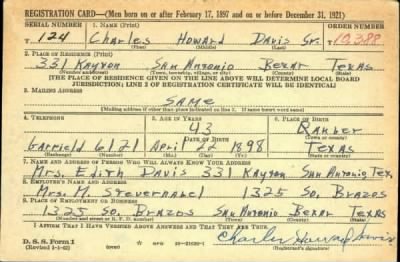 REGISTRATION CARD—(Men born on or after February 17, 1897 and on or before December 31, 1921)
SERIAL NUMBER 1. NAME (Print) ORDER NUMBER
T 124 Charles Howard Davis Sr. 10388
(First) (Middle) (Last)
2. PLACE OF RESIDENCE (Print)
331 Kayton San Antonio Bexar Texas
(Number and street) (Town, township, village, or city) (County) (State)
[THE PLACE OF RESIDENCE GIVEN ON THE LINE ABOVE WILL DETERMINE LOCAL BOARD
JURISDICTION; LINE 2 OF REGISTRATION CERTIFICATE WILL BE IDENTICAL]
3. MAILING ADDRESS
SAME
(Mailing address if other than place indicated on line 2. If same insert word same)
4. TELEPHONE 5. AGE IN YEARS 6. PLACE OF BIRTH
43
DATE OF BIRTH (Town or county)
Garfield 6121 April 22 1898 Texas
(Exchange) (Number) (Mo.) (Day) (Yr.) (State or country)
7. NAME AND ADDRESS OF PERSON WHO WILL ALWAYS KNOW YOUR ADDRESS
Mrs. Edith Davis 331 Kayton San Antonio, Tex
8. EMPLOYER'S NAME AND ADDRESS
Mrs. M. 1325 So. Brazos
9. PLACE OF EMPLOYMENT OR BUSINESS
1325 So. Brazos San Antonio Bexar Tex.
(Number and street or R. F. D. number) (Town) (County) (State)
I AFFIRM THAT I HAVE VERIFIED ABOVE ANSWERS AND THAT THEY ARE TRUE.
D. S. S. Form 1 Charles Howard Davis
(over) (Registrant's signature)